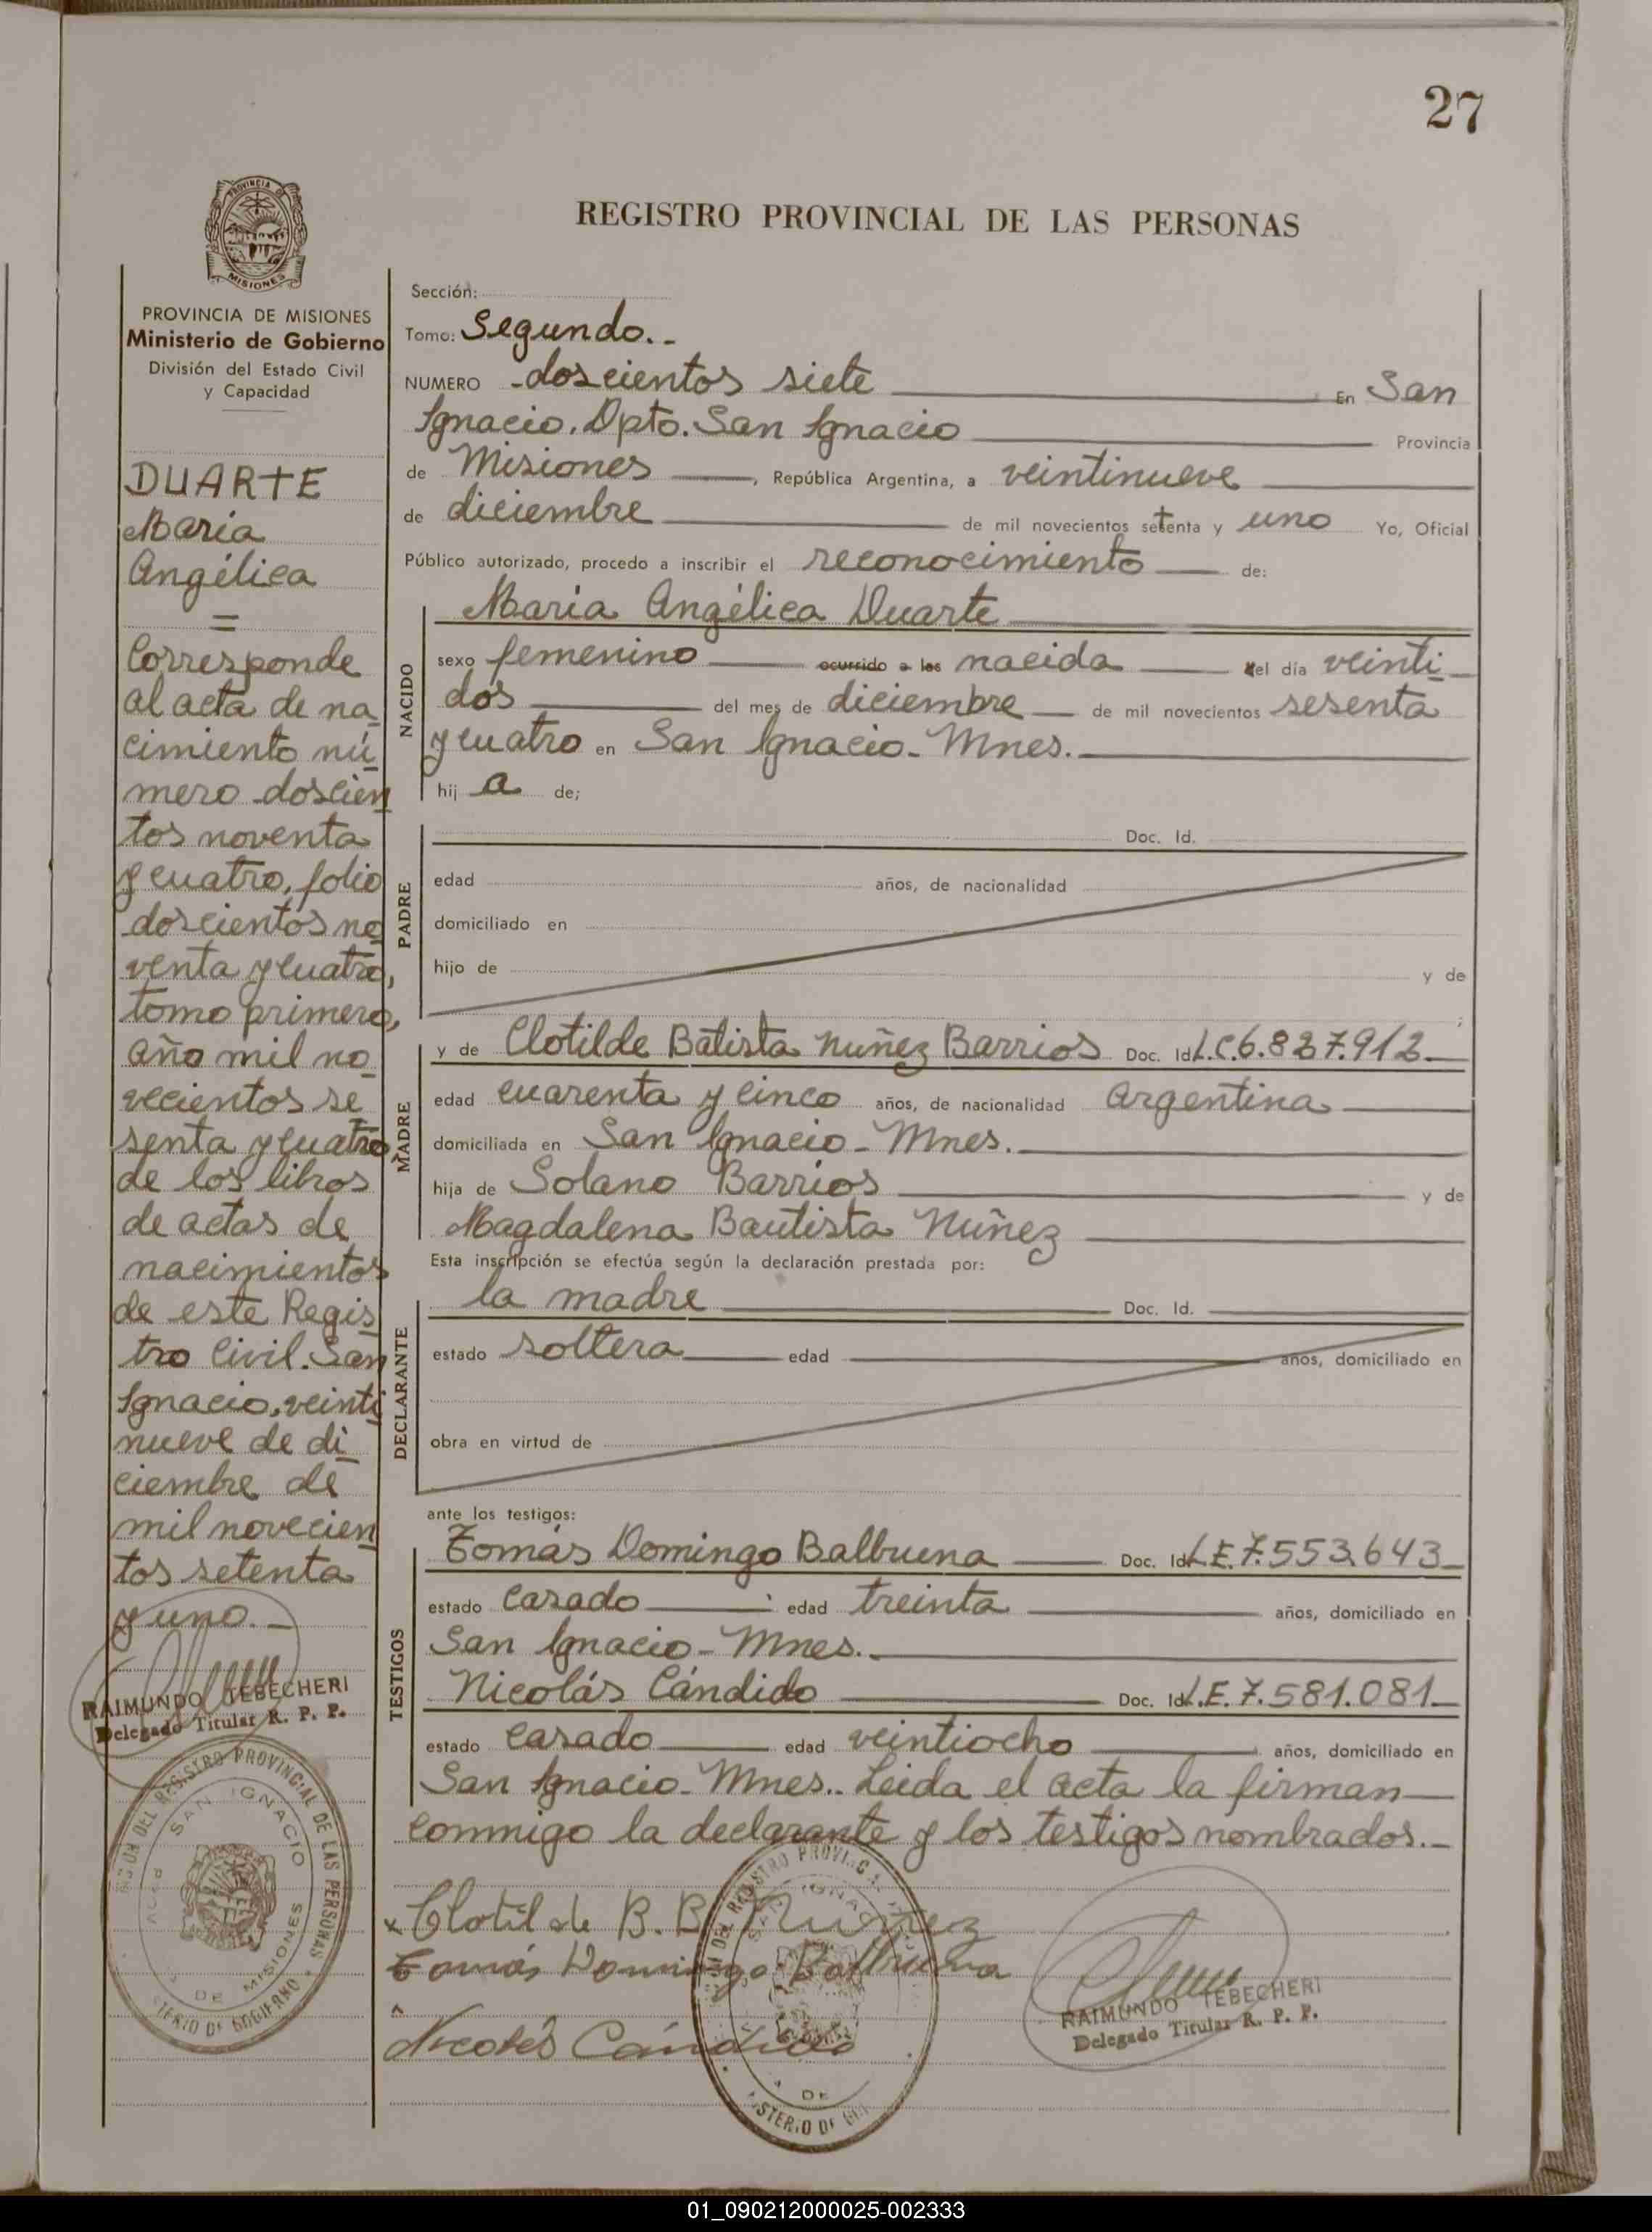 27
PROVINCIA DE
MISIONES
REGISTRO PROVINCIAL DE LAS PERSONAS
PROVINCIA DE MISIONES
Ministerio de Gobierno
División del Estado Civil
y Capacidad
DUARTE
Maria
Angélica
=
Corresponde
al acta de na
cimiento nú
mero doscien
tos noventa
y cuatro, folio
doscientos no
venta y cuatro,
tomo primero,
año mil no
vecientos se
senta y cuatro
de los libros
de actas de
nacimientos
de este Regis
tro Civil. San
Ignacio, veinti
nueve de di
ciembre de
mil novecien
tos setenta
y uno.-
RAIMUNDO TEBECHERI
Delegado Titular R. P. P.
DEL REGISTRO PROVINCIAL DE LAS PERSONAS
SAN IGNACIO
DE MISIONES
Sección:
Tomo: Segundo.-
NUMERO -doscientos siete En San
Ignacio. Dpto. San Ignacio Provincia
de Misiones, República Argentina, a veintinueve
de diciembre de mil novecientos setenta y uno Yo, Oficial
Público autorizado, procedo a inscribir el reconocimiento de:
NACIDO
Maria Angélica Duarte
sexo femenino ocurrido a las nacida del día veinti
dós del mes de diciembre de mil novecientos sesenta
y cuatro en San Ignacio - Mnes.
hij a de;
PADRE
Doc. Id.
edad años, de nacionalidad
domiciliado en
hijo de y de
;
MADRE
y de Clotilde Batista Nuñez Barrios Doc. Id. L.C. 6.827.912
edad cuarenta y cinco años, de nacionalidad Argentina
domiciliada en San Ignacio - Mnes.
hija de Solano Barrios y de
Magdalena Bautista Nuñez
Esta inscripción se efectúa según la declaración prestada por:
DECLARANTE
la madre Doc. Id.
estado soltera edad años, domiciliado en
obra en virtud de
ante los testigos:
TESTIGOS
Tomás Domingo Balbuena Doc. Id. L.E. 7.553.643
estado casado edad treinta años, domiciliado en
San Ignacio - Mnes.-
Nicolás Cándido Doc. Id. L.E. 7.581.081
estado casado edad veintiocho años, domiciliado en
San Ignacio - Mnes.. Leida el acta la firman
conmigo la declarante y los testigos nombrados.-
x Clotilde B. B. Nuñez
Tomás Domingo Balbuena
Nicolás Cándido
RAIMUNDO TEBECHERI
Delegado Titular R. P. P.
01_090212000025-002333